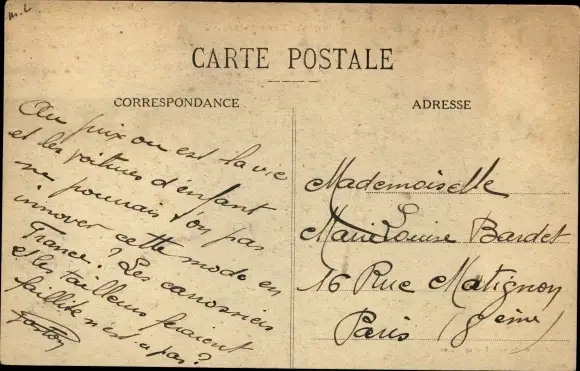 m. L
CARTE POSTALE
CORRESPONDANCE
ADRESSE
Au prix ou est la vie
et les voitures d'enfant
ne pourrais t'on pas
innover cette mode en
France ? Les carossiers
& les tailleurs feraient
faillite n'est ce pas ?
Gaston
Mademoiselle
Marie Louise Bardet
16 Rue Matignon
Paris (8eme)